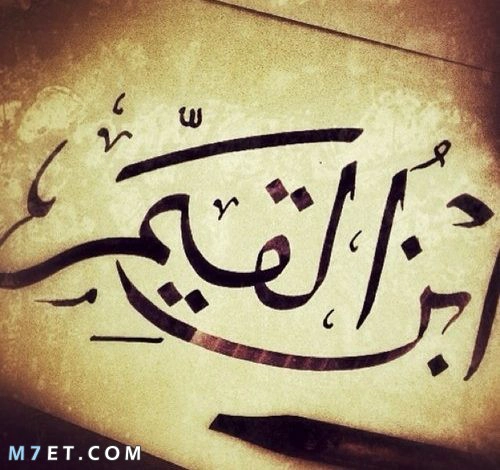 ابنُ القيِّم
M7ET.COM